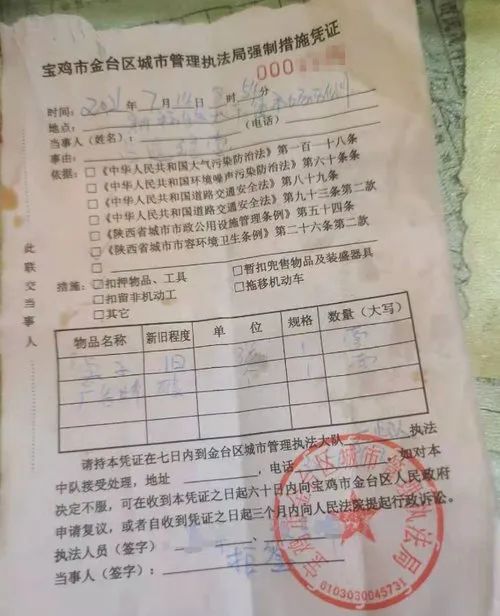 宝鸡市金台区城市管理执法局强制措施凭证
000
时间：2021年7月14日8时54分
地点：
当事人（姓名）：（电话）
事由：
依据：□《中华人民共和国大气污染防治法》第一百一十八条
□《中华人民共和国环境噪声污染防治法》第六十条
□《中华人民共和国道路交通安全法》第八十九条
□《中华人民共和国道路交通安全法》第九十三条第二款
□《陕西省城市市政公用设施管理条例》第五十四条
□《陕西省城市市容环境卫生条例》第二十六条第二款
□
措施：□扣押物品、工具 □暂扣兜售物品及装盛器具
□扣留非机动工 □拖移机动车
□其它
此联交当事人
物品名称 新旧程度 单位 规格 数量（大写）
旧
请持本凭证在七日内到金台区城市管理执法大队 执法
中队接受处理，地址 ，电话 。如对本
决定不服，可在收到本凭证之日起六十日内向宝鸡市金台区人民政府
申请复议，或者自收到凭证之日起三个月内向人民法院提起行政诉讼。
执法人员（签字）
当事人（签字）： 拒签
0103030045731